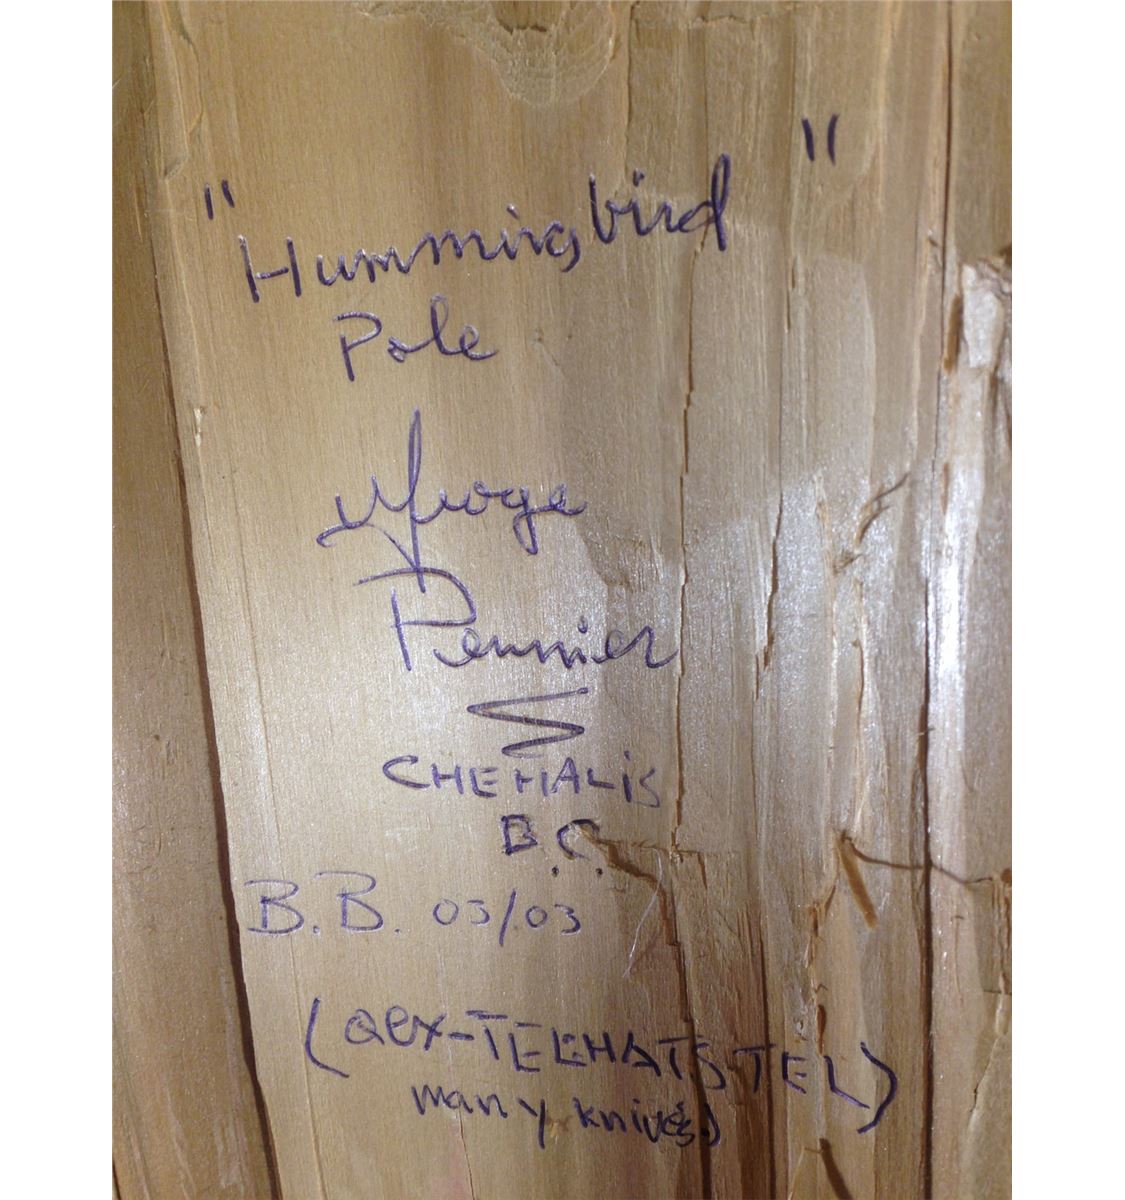 "Hummingbird"
Pole
Pennier
CHEHALIS
B.C.
B.B. 03/03
(QEX-TELEHATSTEL)
many knives)